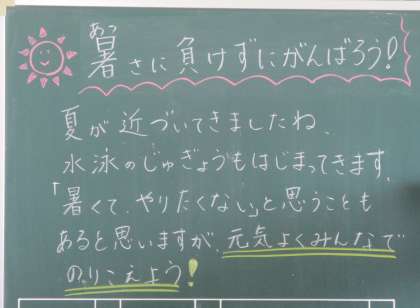 あつ
暑さに負けずにがんばろう!
夏が近づいてきましたね、
水泳のじゅぎょうもはじまってきます。
「暑くて、やりたくない」と思うことも
あると思いますが、元気よくみんなで
のりこえよう!